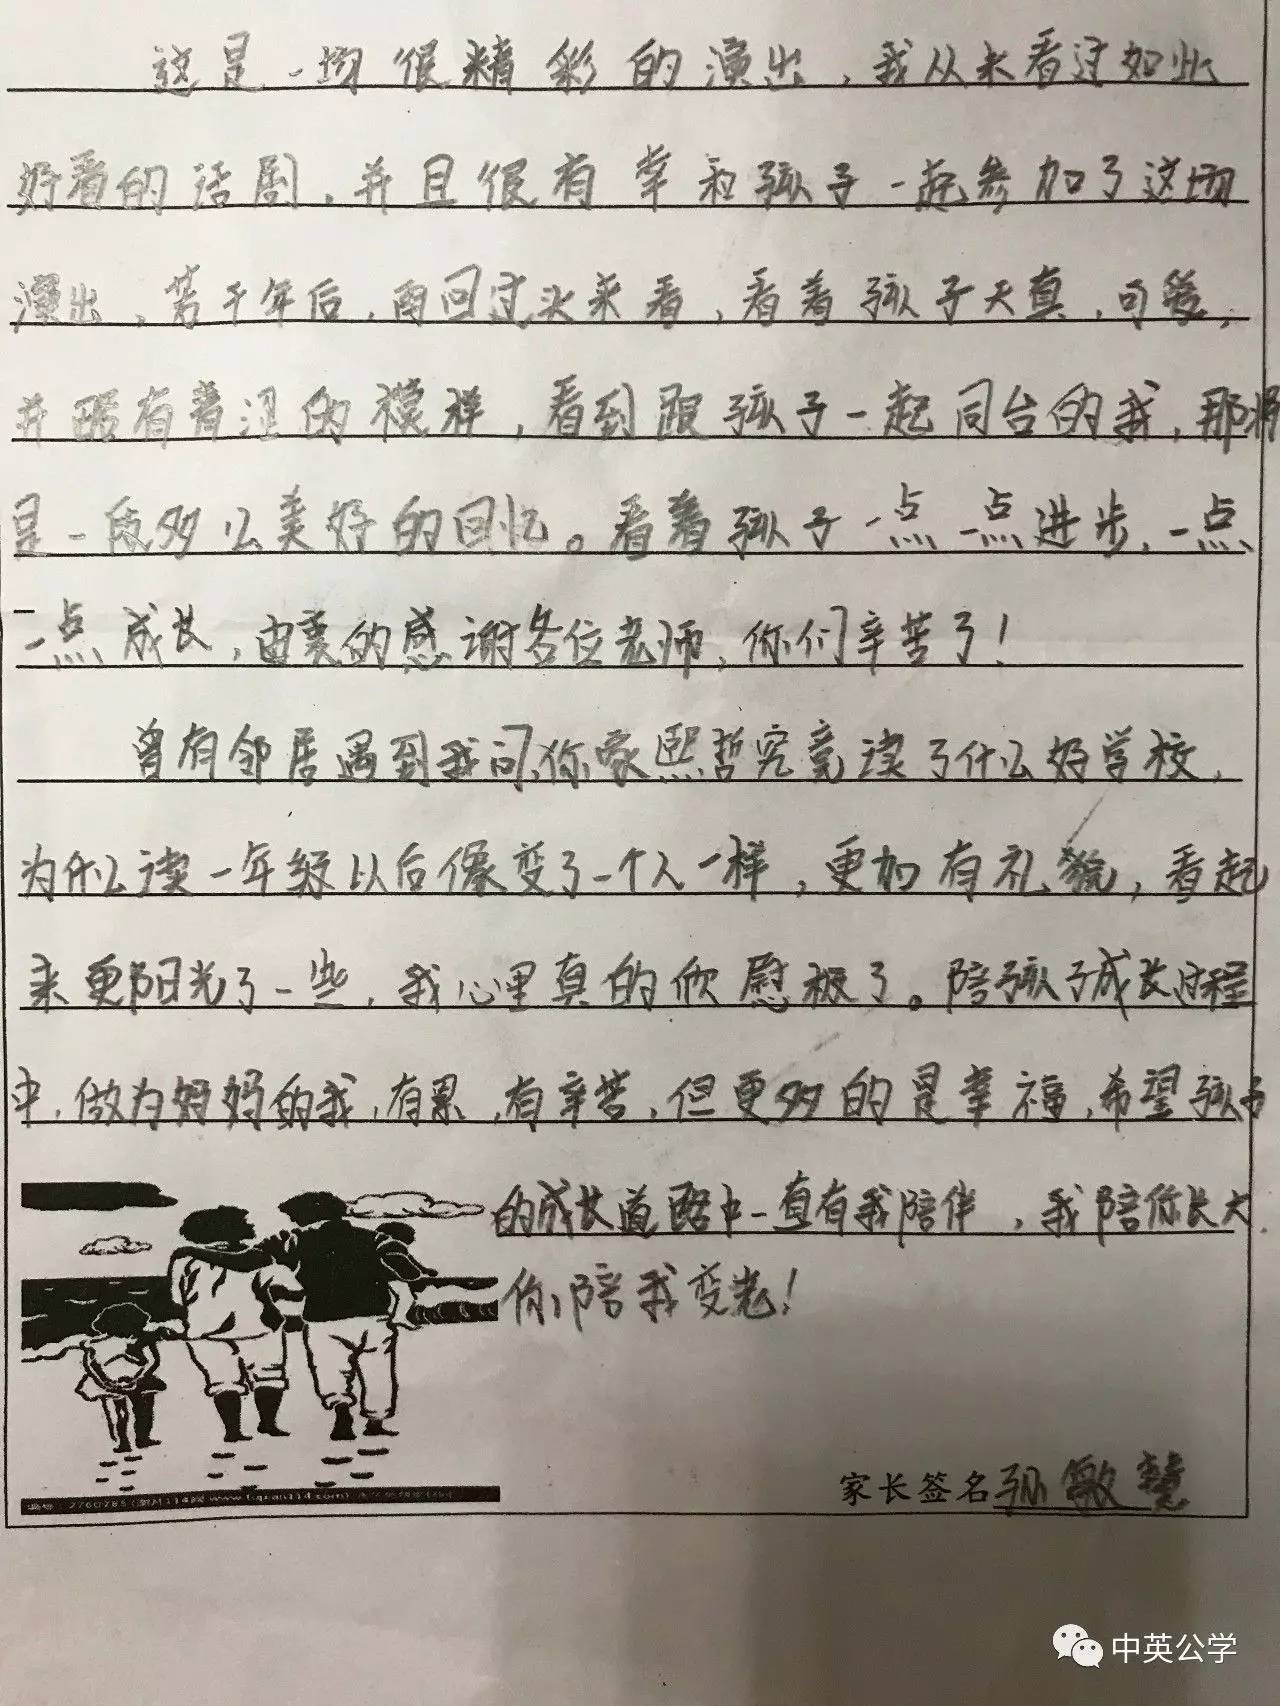 这是一场很精彩的演出，我从未看过如此
好看的话剧，并且很有幸和孩子一起参加了这场
演出，若干年后，再回过头来看，看着孩子天真，可爱，
并略有着涩的模样，看到跟孩子一起同台的我，那将
是一段多么美好的回忆。看着孩子一点一点进步，一点
一点成长，由衷的感谢各位老师，你们辛苦了！
曾有邻居遇到我问，你家熙哲究竟读了什么好学校，
为什么读一年级以后像变了一个人一样，更加有礼貌，看起
来更阳光了一些，我心里真的欣慰极了。陪孩子成长过程
中，做为妈妈的我，有累，有辛苦，但更多的是幸福，希望孩子
的成长道路中一直有我陪伴，我陪你长大，
你陪我变老！
家长签名 孙敏慧
中英公学